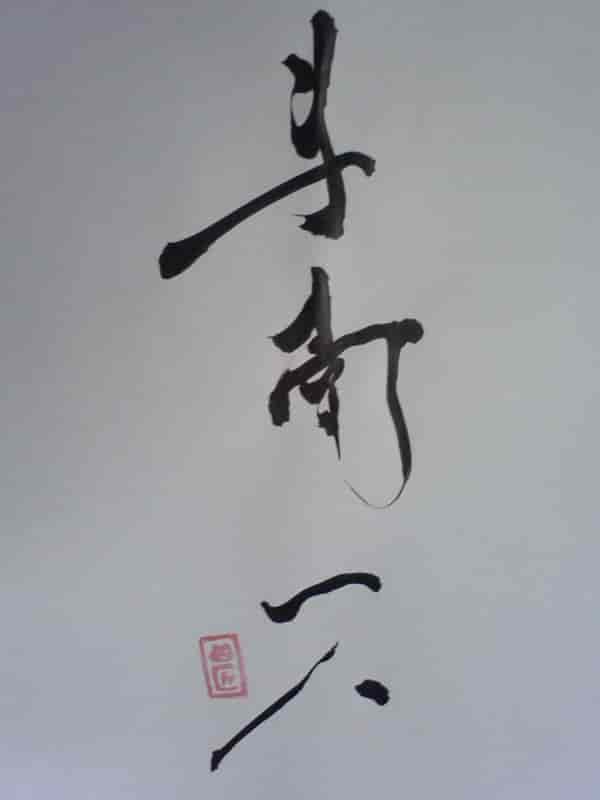 斗南一人